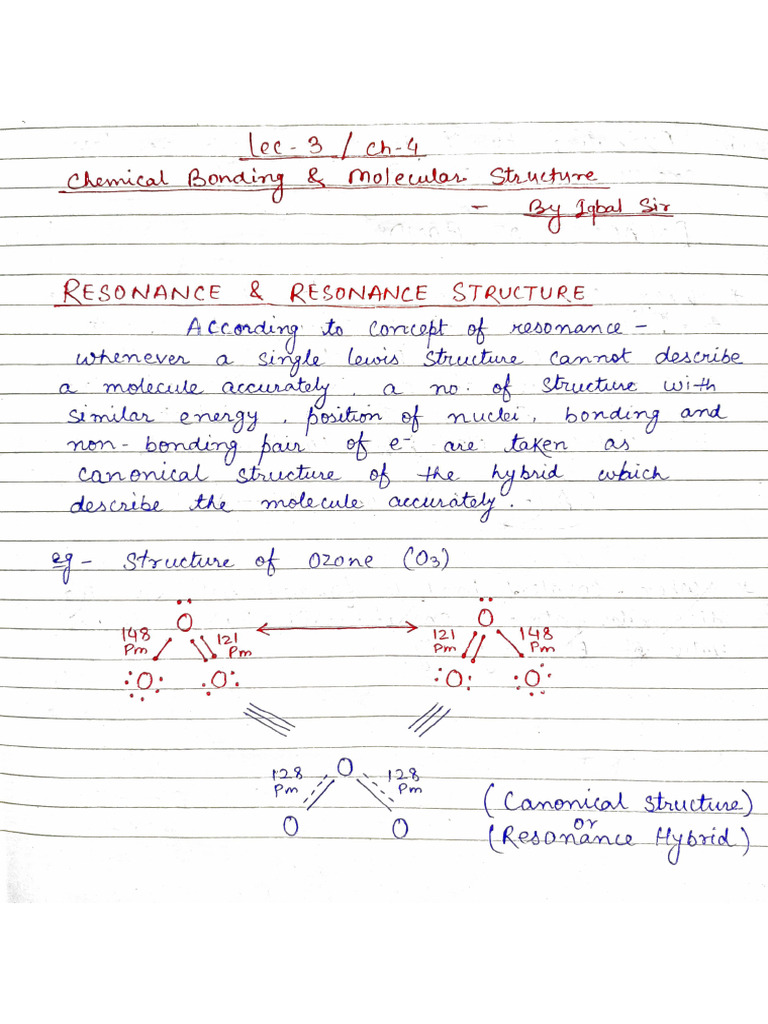 Lec-3 / Ch-4
Chemical Bonding & Molecular Structure
- By Iqbal Sir
RESONANCE & RESONANCE STRUCTURE
According to concept of resonance -
whenever a single lewis structure cannot describe
a molecule accurately, a no. of structure with
similar energy, position of nuclei, bonding and
non-bonding pair of e⁻ are taken as
canonical structure of the hybrid which
describe the molecule accurately.
eg - Structure of Ozone (O3)
O O
148 Pm 121 Pm 121 Pm 148 Pm
O O O O
128 Pm O 128 Pm
O O
(Canonical structure)
or
(Resonance Hybrid)